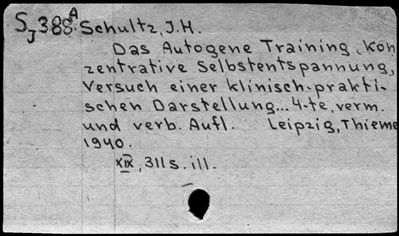 S J 388 A Schultz, J.H.
Das Autogene Training, Kon
zentrative Selbstentspannung,
Versuch einer klinisch-prakti-
schen Darstellung... 4-te, verm.
und verb. Aufl. Leipzig, Thieme
1940.
XIX, 311 s. ill.